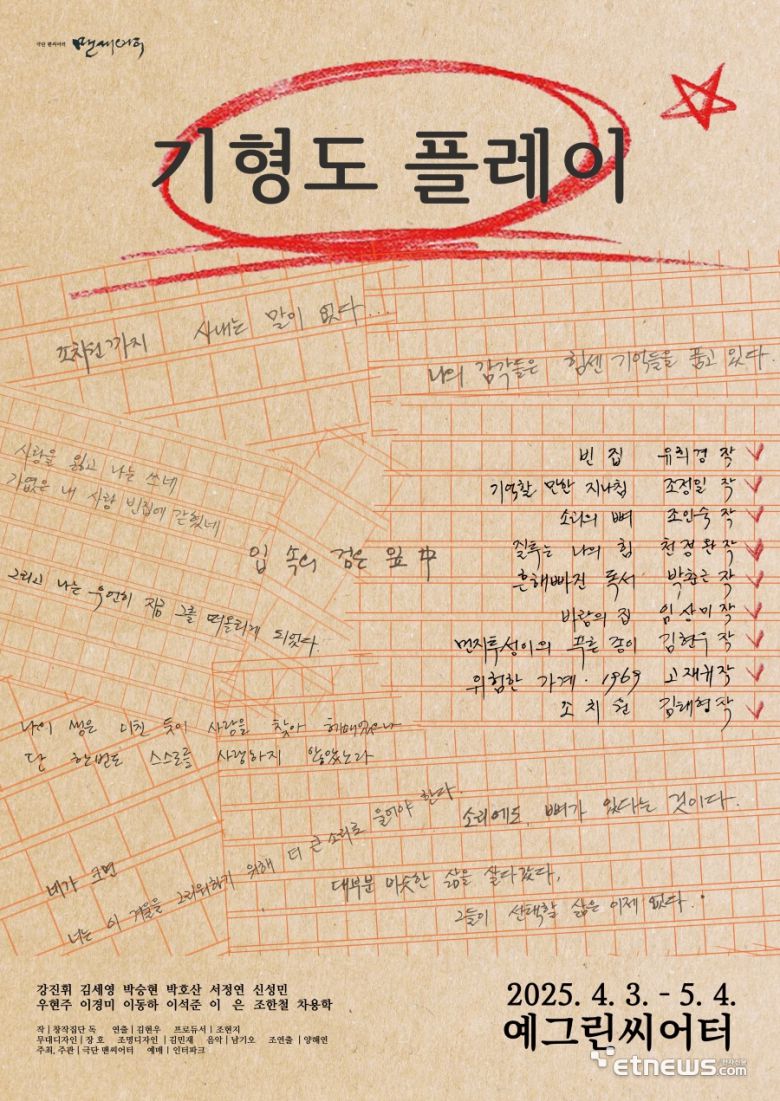 극단 맨씨어터 맨씨어터
기형도 플레이
조치원까지 사내는 말이 없다...
나의 감각들은 힘센 기억들을 품고 있다.
사랑을 잃고 나는 쓰네
가엾은 내 사랑 빈집에 갇혔네
빈 집 유희경 작
기억할 만한 지나침 조정일 작
소리의 뼈 조인숙 작
질투는 나의 힘 천정완 작
흔해빠진 독서 박춘근 작
바람의 집 임상미 작
먼지투성이의 푸른 종이 김현우 작
위험한 가계·1969 고재귀 작
조치원 김태형 작
입 속의 검은 잎 中
그리고 나는 우연히 지금 그를 떠올리게 되었다.
나의 생은 미친 듯이 사랑을 찾아 헤매었으나
단 한번도 스스로를 사랑하지 않았노라
네가 크면
너는 이 겨울을 그리워하기 위해 더 큰 소리로 울어야 한다.
소리에도 뼈가 있다는 것이다.
대부분 비슷한 삶을 살다갔다,
그들이 선택할 삶은 이제 없다.
강진휘 김세영 박승현 박호산 서정연 신성민
우현주 이경미 이동하 이석준 이 은 조한철 차용학
작 | 창작집단 독 연출 | 김현우 프로듀서 | 조현지
무대디자인 | 장 호 조명디자인 | 김민재 음악 | 남기오 조연출 | 양해연
주최, 주관 | 극단 맨씨어터 예매 | 인터파크
2025. 4. 3. - 5. 4.
예그린씨어터
전자신문
etnews.com